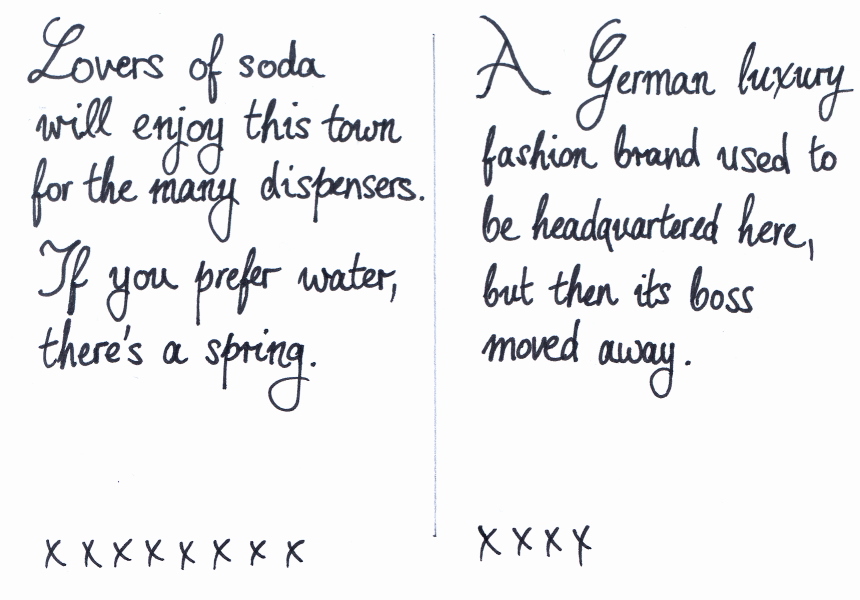 Lovers of soda
will enjoy this town
for the many dispensers.
If you prefer water,
there's a spring.
x x x x x x x x
A German luxury
fashion brand used to
be headquartered here,
but then its boss
moved away.
x x x x